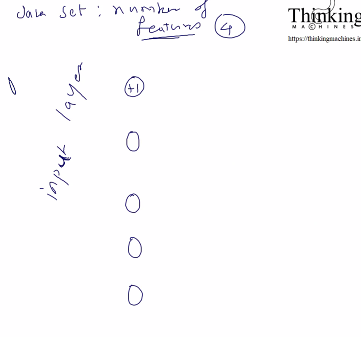 data set : number of
features 4
Thinking
MACHINES
https://thinkingmachines.in
+1
input layer